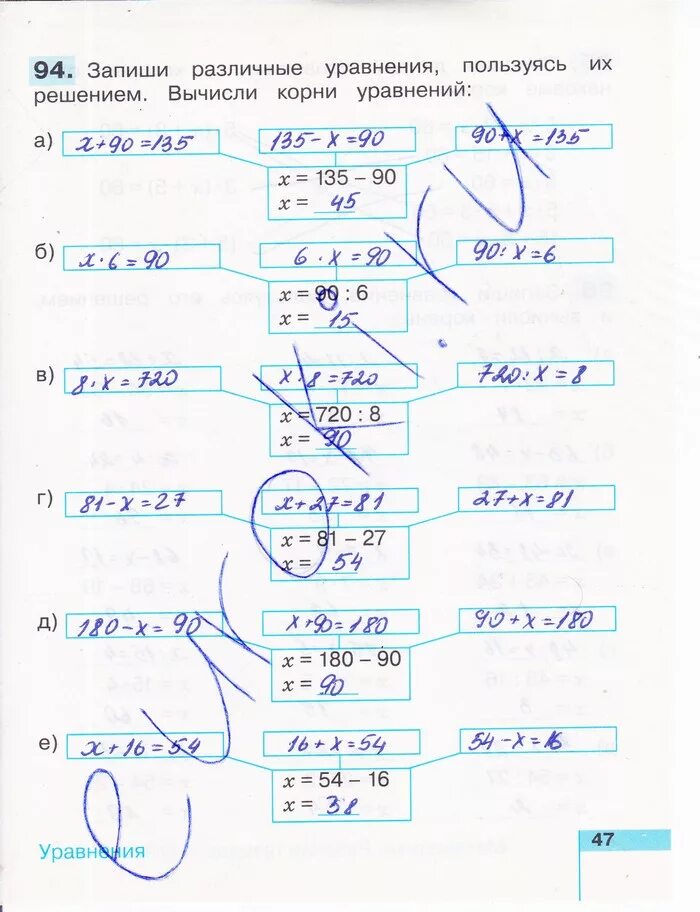 94. Запиши различные уравнения, пользуясь их
решением. Вычисли корни уравнений:
а) x+90=135 135-x=90 90+x=135
x = 135 – 90
x = 45
б) x·6=90 6·x=90 90:x=6
x = 90 : 6
x = 15
в) 8·x=720 x·8=720 720:x=8
x = 720 : 8
x = 90
г) 81-x=27 x+27=81 27+x=81
x = 81 – 27
x = 54
д) 180-x=90 x+90=180 90+x=180
x = 180 – 90
x = 90
е) x+16=54 16+x=54 54-x=16
x = 54 – 16
x = 38
Уравнения
47